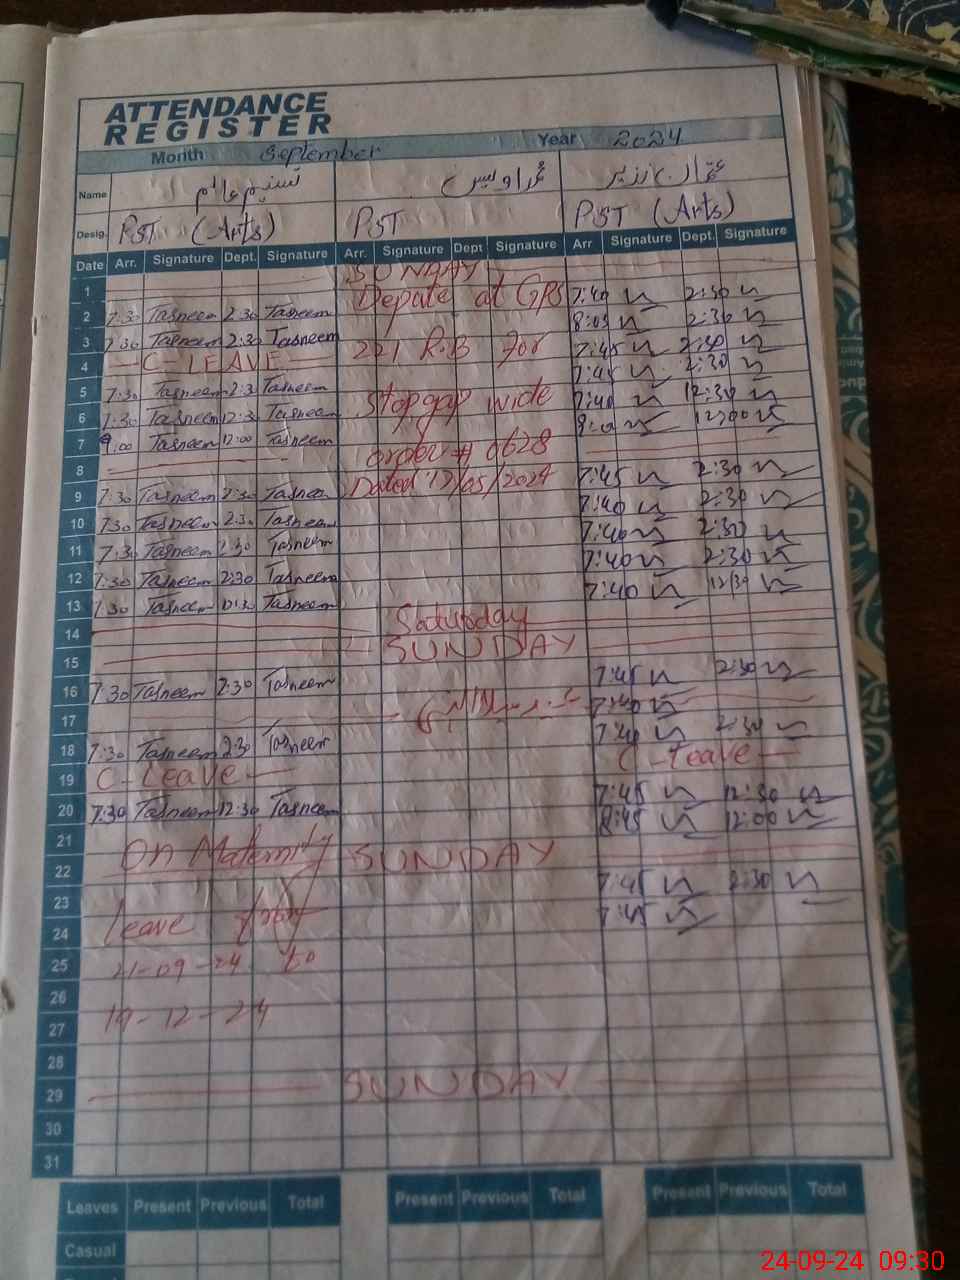 ATTENDANCE
REGISTER
Month September Year 2024
Name تسنیم عالم محمد اویس
Desig. PST (Arts) PST PST (Arts)
Date Arr. Signature Dept. Signature Arr. Signature Dept Signature Arr Signature Dept. Signature
1 SUNDAY
2 7:30 Tasneem 2:30 Tasneem Depute at GPS 7:40 2:30
3 7:30 Tasneem 2:30 Tasneem 221 R.B For 8:05 2:30
4 C-LEAVE 7:45 2:30
5 7:30 Tasneem 2:30 Tasneem Stopgap wide 7:45 2:30
6 7:30 Tasneem 12:30 Tasneem 7:40 12:30
7 9:00 Tasneem 12:00 Tasneem order # 0628 12:00
8 Dated
9 7:30 Tasneem 2:30 Tasneem 7:45 2:30
10 7:30 Tasneem 2:30 Tasneem 7:40 2:30
11 7:30 Tasneem 2:30 Tasneem 7:40 2:30
12 7:30 Tasneem 2:30 Tasneem 7:40 2:30
13 7:30 Tasneem 12:30 Tasneem 7:40 12:30
14 Saturday
15 SUNDAY
16 7:30 Tasneem 2:30 Tasneem 7:45 2:30
17 7:40
18 7:30 Tasneem 2:30 Tasneem 7:40 2:30
19 C-Leave C-Leave
20 7:30 Tasneem 12:30 Tasneem 7:45 12:30
21 8:45 12:00
22 On Maternity SUNDAY
23 7:45 2:30
24 leave from 7:45
25 21-09-24 to
26
27 19-12-24
28
29 SUNDAY
30
31
Leaves Present Previous Total Present Previous Total Present Previous Total
Casual
24-09-24 09:30